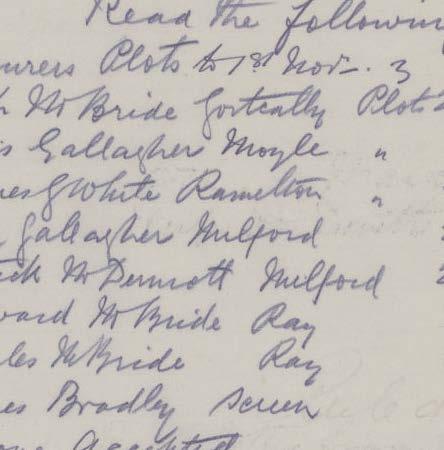 Read the followin
ourers Plots to 1st Nov. 3
h McBride Gortcally Plots
is Gallagher Moyle "
mes G White Ramelton "
Gallagher Milford
ick McDermott Milford 2
ward McBride Ray
rles McBride Ray
es Bradley Screen
accepted